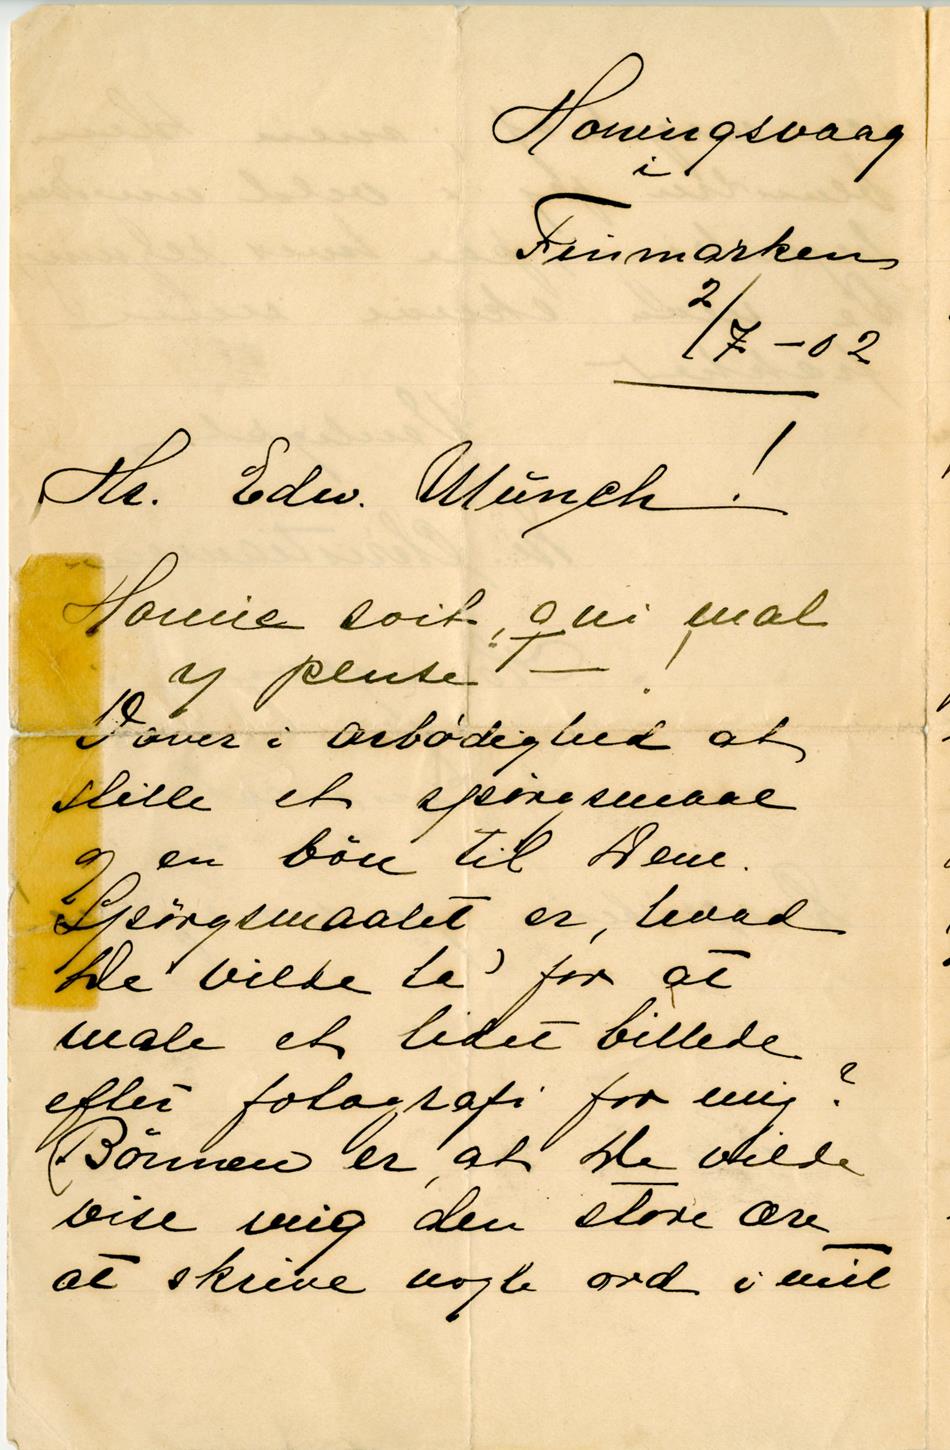 Honingsvaag
i
Finmarken
2/7 – 02
Hr. Edw. Münch!
Honnie soit, qui mal
y pense" – !
Vover i ærbødighed at
stille et spørgsmaal
og en bön til Dem.
Spørgsmaalet er, hvad
De vilde ta' for at
male et lidet billede
efter fotografi for mig?
Bönnen er, at De vilde
vise mig den store ære
at skrive nogle ord i mit